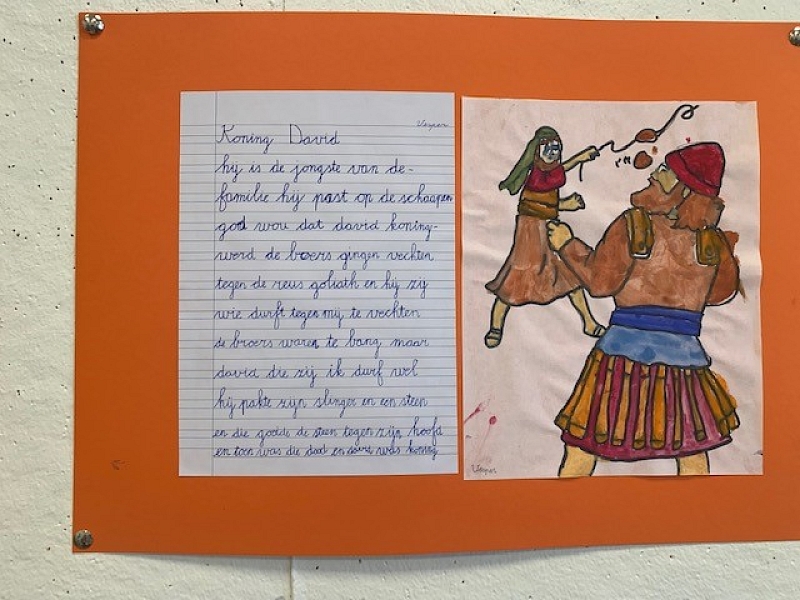 Vesper
Koning David
hij is de jongste van de-
familie hij past op de schaapen
god wou dat david koning-
werd de broers gingen vechten
tegen de reus goliath en hij zij
wie durft tegen mij te vechten
de broers waren te bang maar
david die zij ik durf wel
hij pakte zijn slinger en een steen
en die gooide de steen tegen zijn hoofd
en toen was die dood en david was koning
Vesper